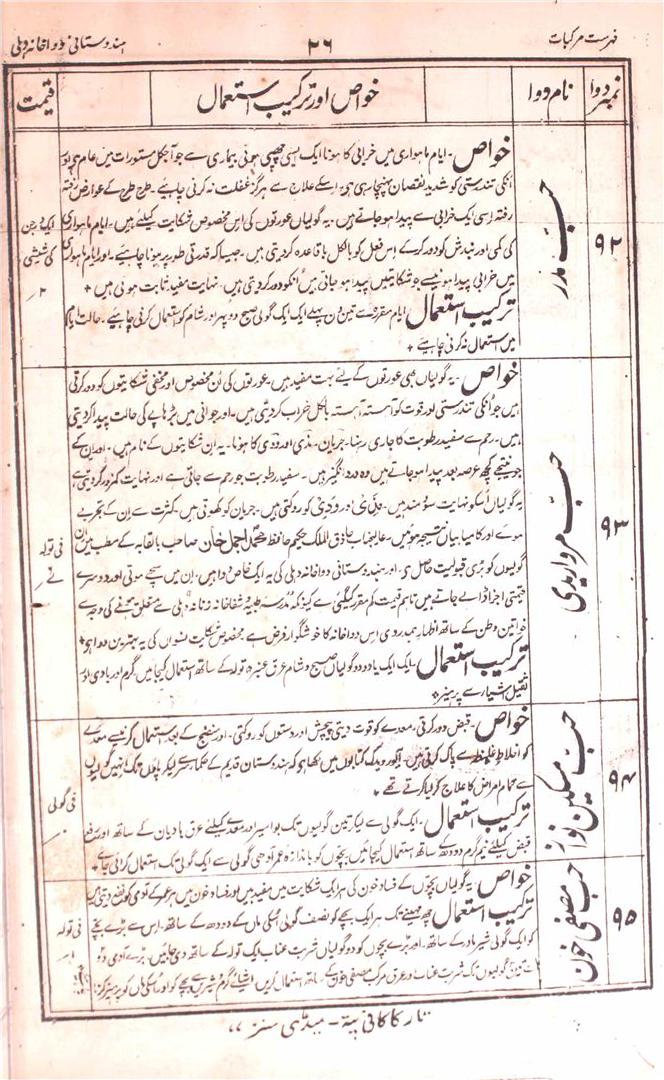 فہرست مرکبات
۲۶
ہندوستانی دواخانہ دہلی
نمبر دوا
نام دوا
خواص اور ترکیب استعمال
قیمت
۹۲
حب مدر
خواص۔ ایام ماہواری میں خرابی کا ہونا ایک ایسی چھپی ہوئی بیماری ہے جو آجکل مستورات میں عام ہے اور
انکی تندرستی کو شدید نقصان پہنچا رہی ہے۔ اسکے علاج سے ہرگز غفلت نہ کرنی چاہیئے۔ طرح طرح کے عوارض رفتہ
رفتہ اسی ایک خرابی سے پیدا ہو جاتے ہیں۔ یہ گولیاں عورتوں کی اس مخصوص شکایت کیلئے ہیں۔ ایام ماہواری
کی کمی اور بندش کو دور کرکے اس فعل کو بالکل باقاعدہ کردیتی ہیں۔ جیسا کہ قدرتی طور پر ہونا چاہیئے۔ اور ایام ماہواری
میں خرابی پیدا ہونے سے جو شکایتیں پیدا ہو جاتی ہیں انکو دور کردیتی ہیں۔ نہایت مفید ثابت ہوئی ہیں +
ترکیب استعمال ایام مقررہ سے تین دن پہلے ایک ایک گولی صبح دوپہر اور شام کو استعمال کرنی چاہیئے۔ حالت ایام
میں استعمال نہ کرنی چاہیئے +
ایک درجن
کی شیشی
۹۳
حب مرواریدی
خواص۔ یہ گولیاں بھی عورتوں کے لیئے بہت مفید ہیں۔ عورتوں کی ان مخصوص اور مخفی شکایتوں کو دور کرتی
ہیں جو انکی تندرستی اور قوت کو آہستہ آہستہ بالکل خراب کردیتی ہیں۔ اور جوانی میں بڑھاپے کی حالت پیدا کردیتی
ہیں۔ رحم سے سفید رطوبت کا جاری رہنا۔ جریان۔ مذی اور ودی کا ہونا۔ یہ ان شکایتوں کے نام ہیں۔ اور ان کے
جو نتیجے کچھ عرصہ بعد پیدا ہو جاتے ہیں وہ درد انگیز ہیں۔ سفید رطوبت جو رحم سے جاتی ہے اور نہایت کمزور کردیتی ہے
یہ گولیاں اسکو نہایت سودمند ہیں۔ مذی اور ودی کو روکتی ہیں۔ جریان کو کھوتی ہیں۔ کثرت سے ان کے تجربے
ہوئے اور کامیابیاں نتیجہ ہوئیں۔ عالیجناب حاذق الملک حکیم حافظ محمد اجمل خان صاحب بالقابہ کے مطب میں ان
گولیوں کو بڑی قبولیت حاصل ہے۔ اور ہندوستانی دواخانہ دہلی کی یہ ایک خاص دوا ہیں۔ ان میں سچے موتی اور دوسرے
قیمتی اجزا ڈالے جاتے ہیں تاہم قیمت کم مقرر کیگئی ہے کیونکہ مدرسہ طبیہ و شفاخانہ زنانہ دہلی سے متعلق ہونے کی وجہ سے
خواتین وطن کے ساتھ اظہار ہمدردی اس دواخانہ کا خوشگوار فرض ہے۔ مخصوص شکایت نسواں کی یہ بہترین دوا ہے +
ترکیب استعمال۔ ایک ایک یا دو دو گولیاں صبح و شام عرق عنبر ۵ تولہ کے ساتھ استعمال کیجائیں۔ گرم اور بادی اور
ثقیل اشیار سے پرہیز +
فی تولہ
۹۴
حب مسکین نواز
خواص۔ قبض دور کرتی، معدے کو قوت دیتی پیچش اور دستوں کو روکتی۔ اور منضج کے بعد استعمال کرنیسے معدے
کو اخلاط غلیظ سے پاک کرتی ہیں۔ آیورویدک کتابوں میں لکھا ہے کہ ہندوستان قدیم کے حکما سر سے لیکر پاؤں تک انہیں گولیوں
سے تمام امراض کا علاج کرلیا کرتے تھے +
ترکیب استعمال۔ ایک گولی سے لیکر تین گولیوں تک بواسیر اور معدے کیلئے عرق بادیان کے ساتھ اور رفع
قبض کیلئے نیم گرم دودھ کے ساتھ استعمال کیجائیں بچوں کو باندازہ عمر آدھی گولی سے ایک گولی تک استعمال کرانی چاہیئے
فی گولی
۹۵
حب مصفی خون
خواص۔ یہ گولیاں بچوں کے فساد خون کی ہر ایک شکایت میں مفید ہیں اور فساد خون میں ہر عمر کے آدمی کو نفع دیتی ہیں
ترکیب استعمال چھ مہینے تک ہر ایک بچے کو نصف گولی اسکی ماں کے دودھ کے ساتھ۔ اس سے بڑے بچے
کو ایک گولی شیر مادر کے ساتھ۔ اور بڑے بچوں کو دو گولیاں شربت عناب ایک تولہ کے ساتھ دی جائیں۔ بڑے آدمی دو
سے تین گولیوں تک شربت عناب اور عرق مرکب مصفی خون کے ساتھ استعمال کریں اشیائے گرم و شیریں سے بچے کو اور اسکی ماں کو پرہیز کرنا
فی تولہ
تار کا کافی پتہ۔ میڈی سنز ،،